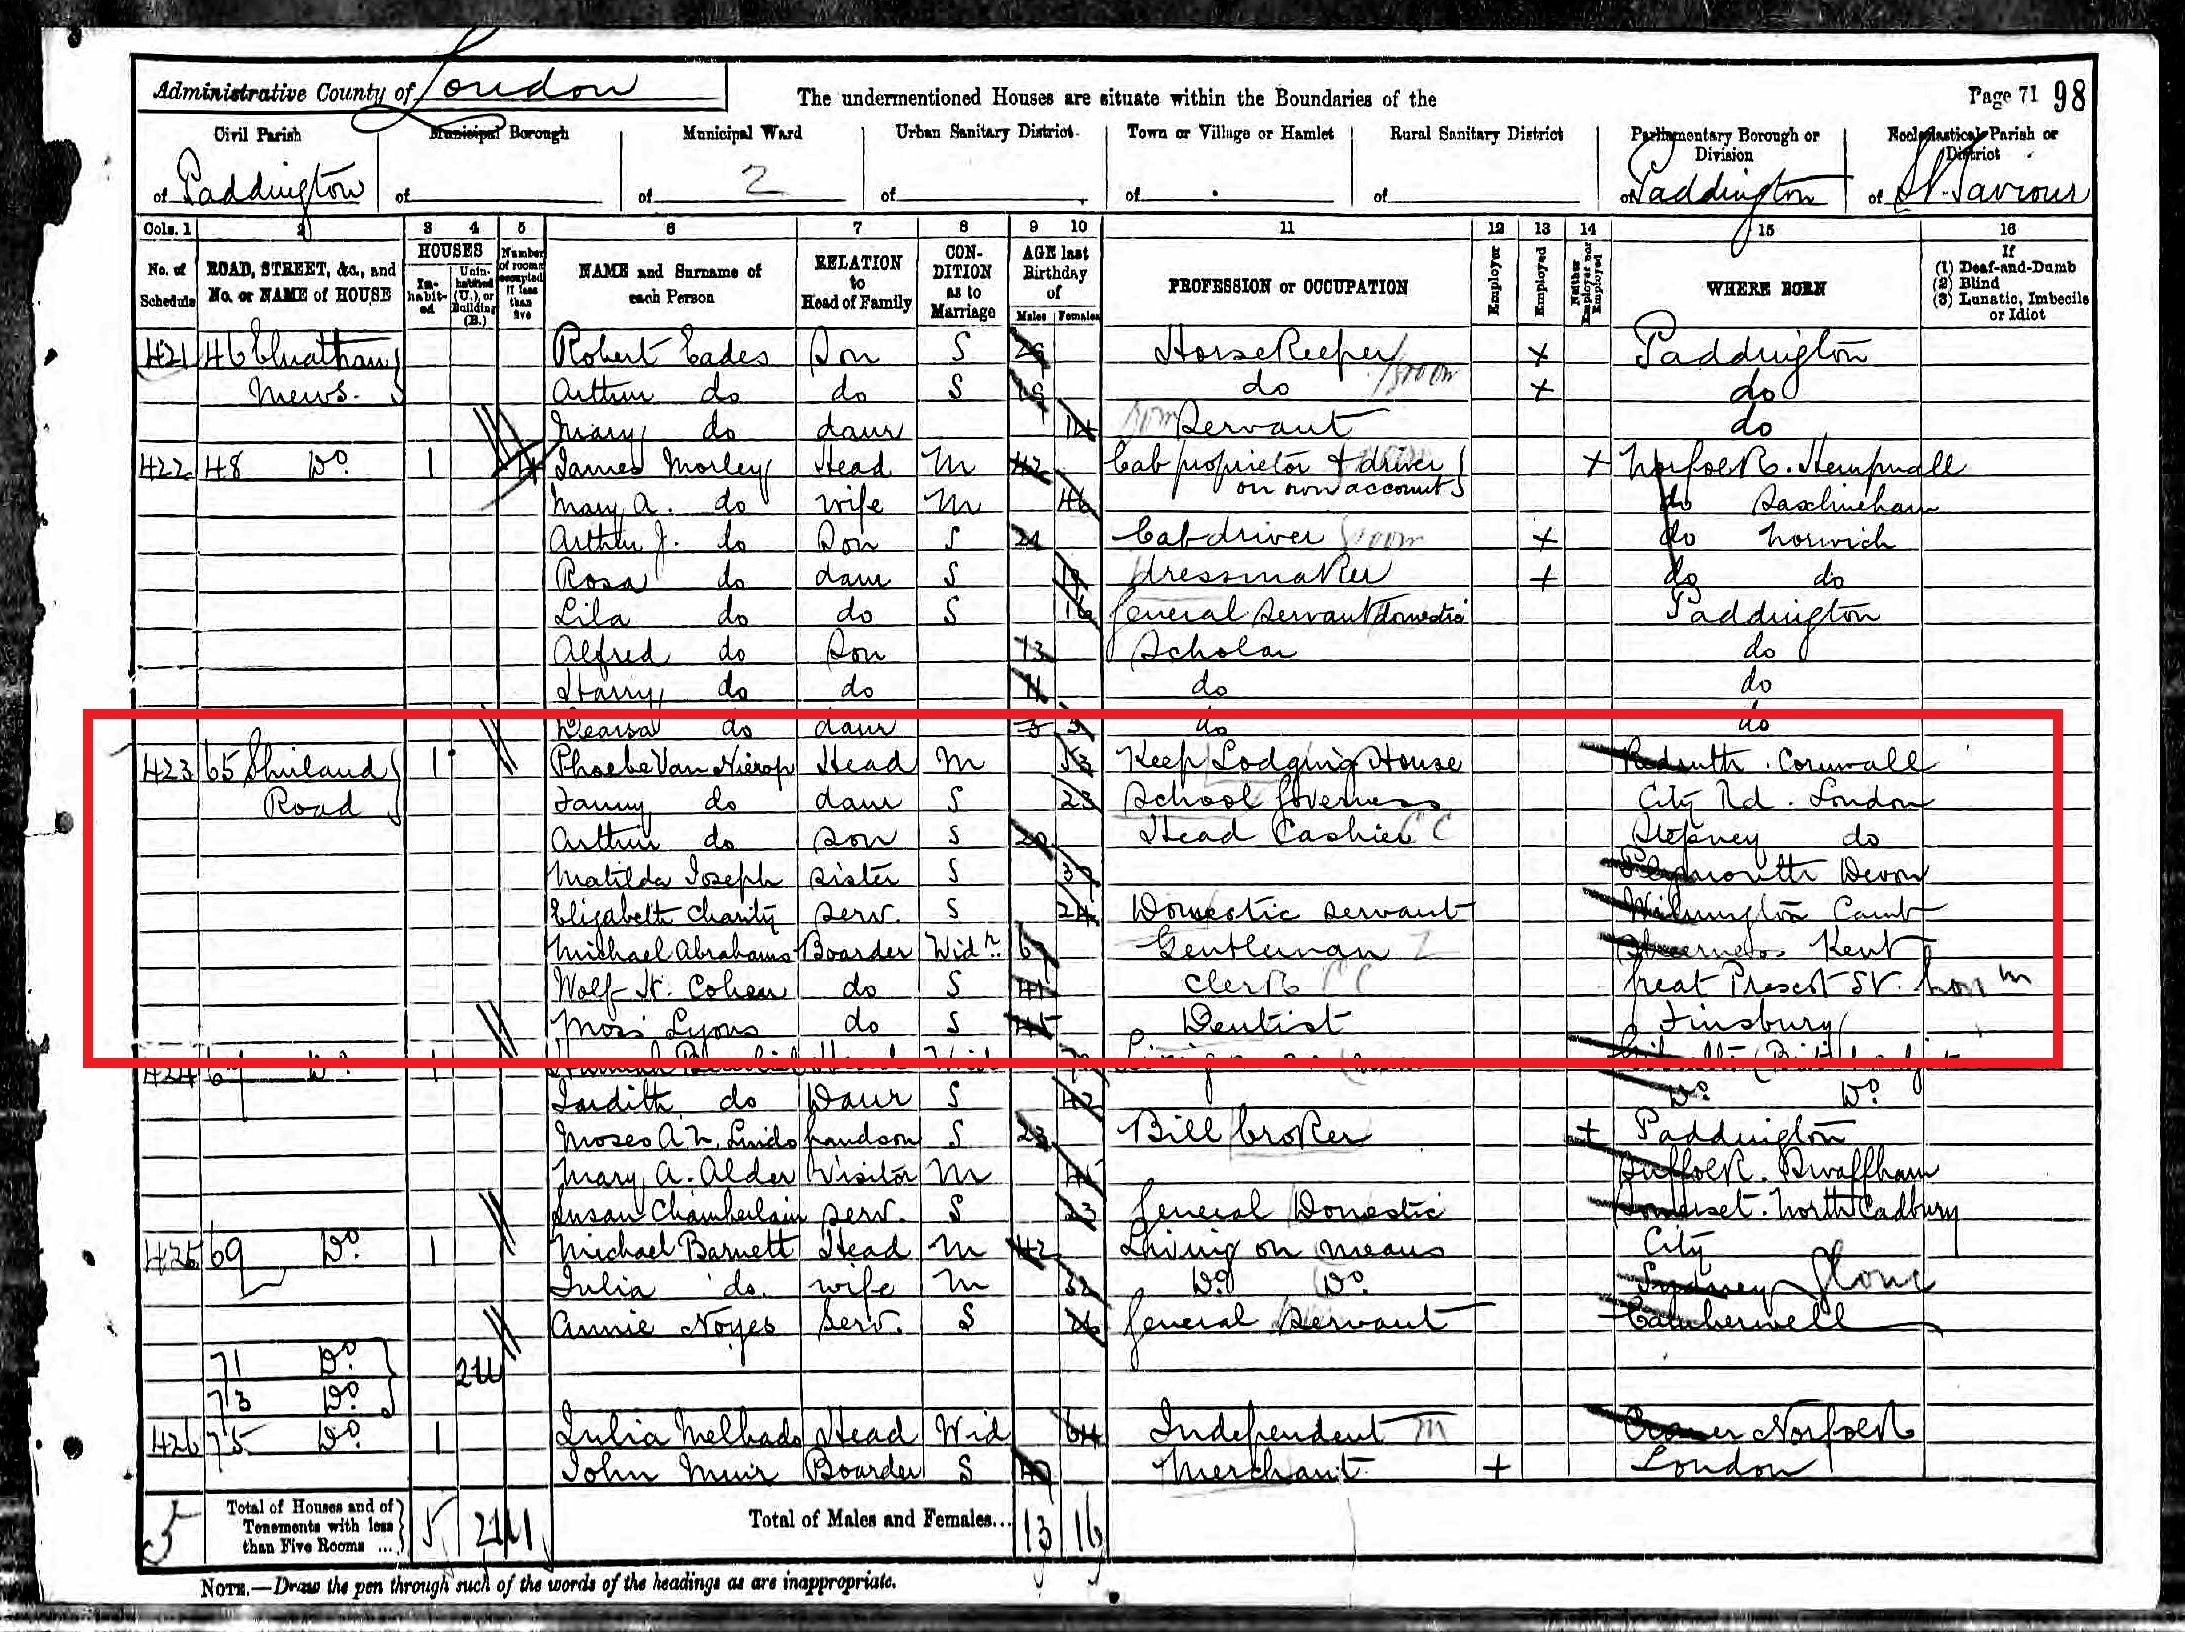 Administrative County of London
The undermentioned Houses are situate within the Boundaries of the
Page 71 98
Civil Parish Municipal Borough Municipal Ward Urban Sanitary District Town or Village or Hamlet Rural Sanitary District Parliamentary Borough or Division Ecclesiastical Parish or District
of Paddington of of 2 of of of of Paddington of St. Saviour
Cols. 1 2 3 4 5 6 7 8 9 10 11 12 13 14 15 16
No. of Schedule ROAD, STREET, &c., and No. or NAME of HOUSE HOUSES Inhabited Uninhabited (U.), or Building (B.) Number of rooms occupied if less than five NAME and Surname of each Person RELATION to Head of Family CONDITION as to Marriage AGE last Birthday of Males Females PROFESSION or OCCUPATION Employer Employed Neither Employer nor Employed WHERE BORN If (1) Deaf-and-Dumb (2) Blind (3) Lunatic, Imbecile or Idiot
421 46 Robert Eades Son S Horsekeeper x Paddington
Mews. Arthur do do S do x do
Mary do daur Servant do
422 48 Do. 1 4 James Morley Head M 42 Cab proprietor & driver on own account x Norfolk. Hempnall
Mary A. do wife M 46 do
Arthur J. do Son S 21 Cab driver x do Norwich
Rosa do daur S dressmaker x do do
Lila do do S 16 General Servant domestic Paddington
Alfred do Son 13 Scholar do
Harry do do 11 do do
do daur do do
423 65 Shirland Road 1 Phoebe Van Nierop Head M 53 Keep Lodging House Redruth. Cornwall
Fanny do daur S 23 School Governess City Rd. London
Arthur do son S 20 Head Cashier CC Stepney do
Matilda Joseph sister S Plymouth Devon
Elizabeth Charity serv. S 24 Domestic servant
Michael Abrahams Boarder Widr. Gentleman Sheerness Kent
Wolf H. Cohen do S 41 Clerk CC Great Prescot St.
Moss Lyons do S 45 Dentist Finsbury
424 67 Do. 1 Head Wid
Judith do Daur S 42 Do. Do.
Moses A N. Lindo Grandson S 23 Bill broker + Paddington
Mary A. Alder Visitor M Suffolk. Swaffham
Susan Chamberlain serv. S 23 General Domestic Somerset. North Cadbury
425 69 Do. 1 Michael Barnett Head M 42 Living on means City
Julia do. wife M 32 Do. Do. Sydney
Annie Noyes Serv. S General Servant Camberwell
71 Do.
73 Do. 2U
426 75 Do. 1 Julia Melhado Head Wid 64 Independent Cromer Norfolk
John Muir Boarder S Merchant + London
5 Total of Houses and of Tenements with less than Five Rooms ... 5 2U 1 Total of Males and Females... 13 16
NOTE.—Draw the pen through such of the words of the headings as are inappropriate.